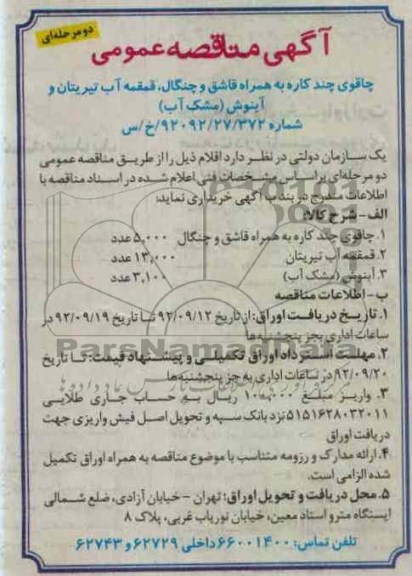 دو مرحله‌ای
آگهی مناقصه عمومی
چاقوی چند کاره به همراه قاشق و چنگال، قمقمه آب تیریتان و
آبنوش (مشک آب)
شماره ۹۲۰۹۲/۲۷/۳۷۲/خ/س
یک سازمان دولتی در نظر دارد اقلام ذیل را از طریق مناقصه عمومی
دو مرحله‌ای براساس مشخصات فنی اعلام شده در اسناد مناقصه با
اطلاعات مندرج در بند ب آگهی خریداری نماید:
الف- شرح کالا:
۱. چاقوی چند کاره به همراه قاشق و چنگال ۵,۰۰۰ عدد
۲. قمقمه آب تیریتان ۱۳,۰۰۰ عدد
۳. آبنوش (مشک آب) ۳,۱۰۰ عدد
ب- اطلاعات مناقصه
۱. تاریخ دریافت اوراق: از تاریخ ۹۲/۰۹/۱۲ تا تاریخ ۹۲/۰۹/۱۹ در
ساعات اداری بجز پنجشنبه‌ها
۲. مهلت استرداد اوراق تکمیلی و پیشنهاد قیمت: تا تاریخ
۹۲/۰۹/۲۰ در ساعات اداری به جز پنجشنبه‌ها
۳. واریز مبلغ ۱۰۰,۰۰۰ ریال به حساب جاری طلایی
۵۱۵۱۶۲۸۰۳۲۰۱۱ نزد بانک سپه و تحویل اصل فیش واریزی جهت
دریافت اوراق
۴. ارائه مدارک و رزومه متناسب با موضوع مناقصه به همراه اوراق تکمیل
شده الزامی است.
۵. محل دریافت و تحویل اوراق: تهران - خیابان آزادی، ضلع شمالی
ایستگاه مترو استاد معین، خیابان نوریاب غربی، پلاک ۸
تلفن تماس: ۶۶۰۰۱۴۰۰ داخلی ۶۲۷۲۹ و ۶۲۷۴۳
ParsNamadData